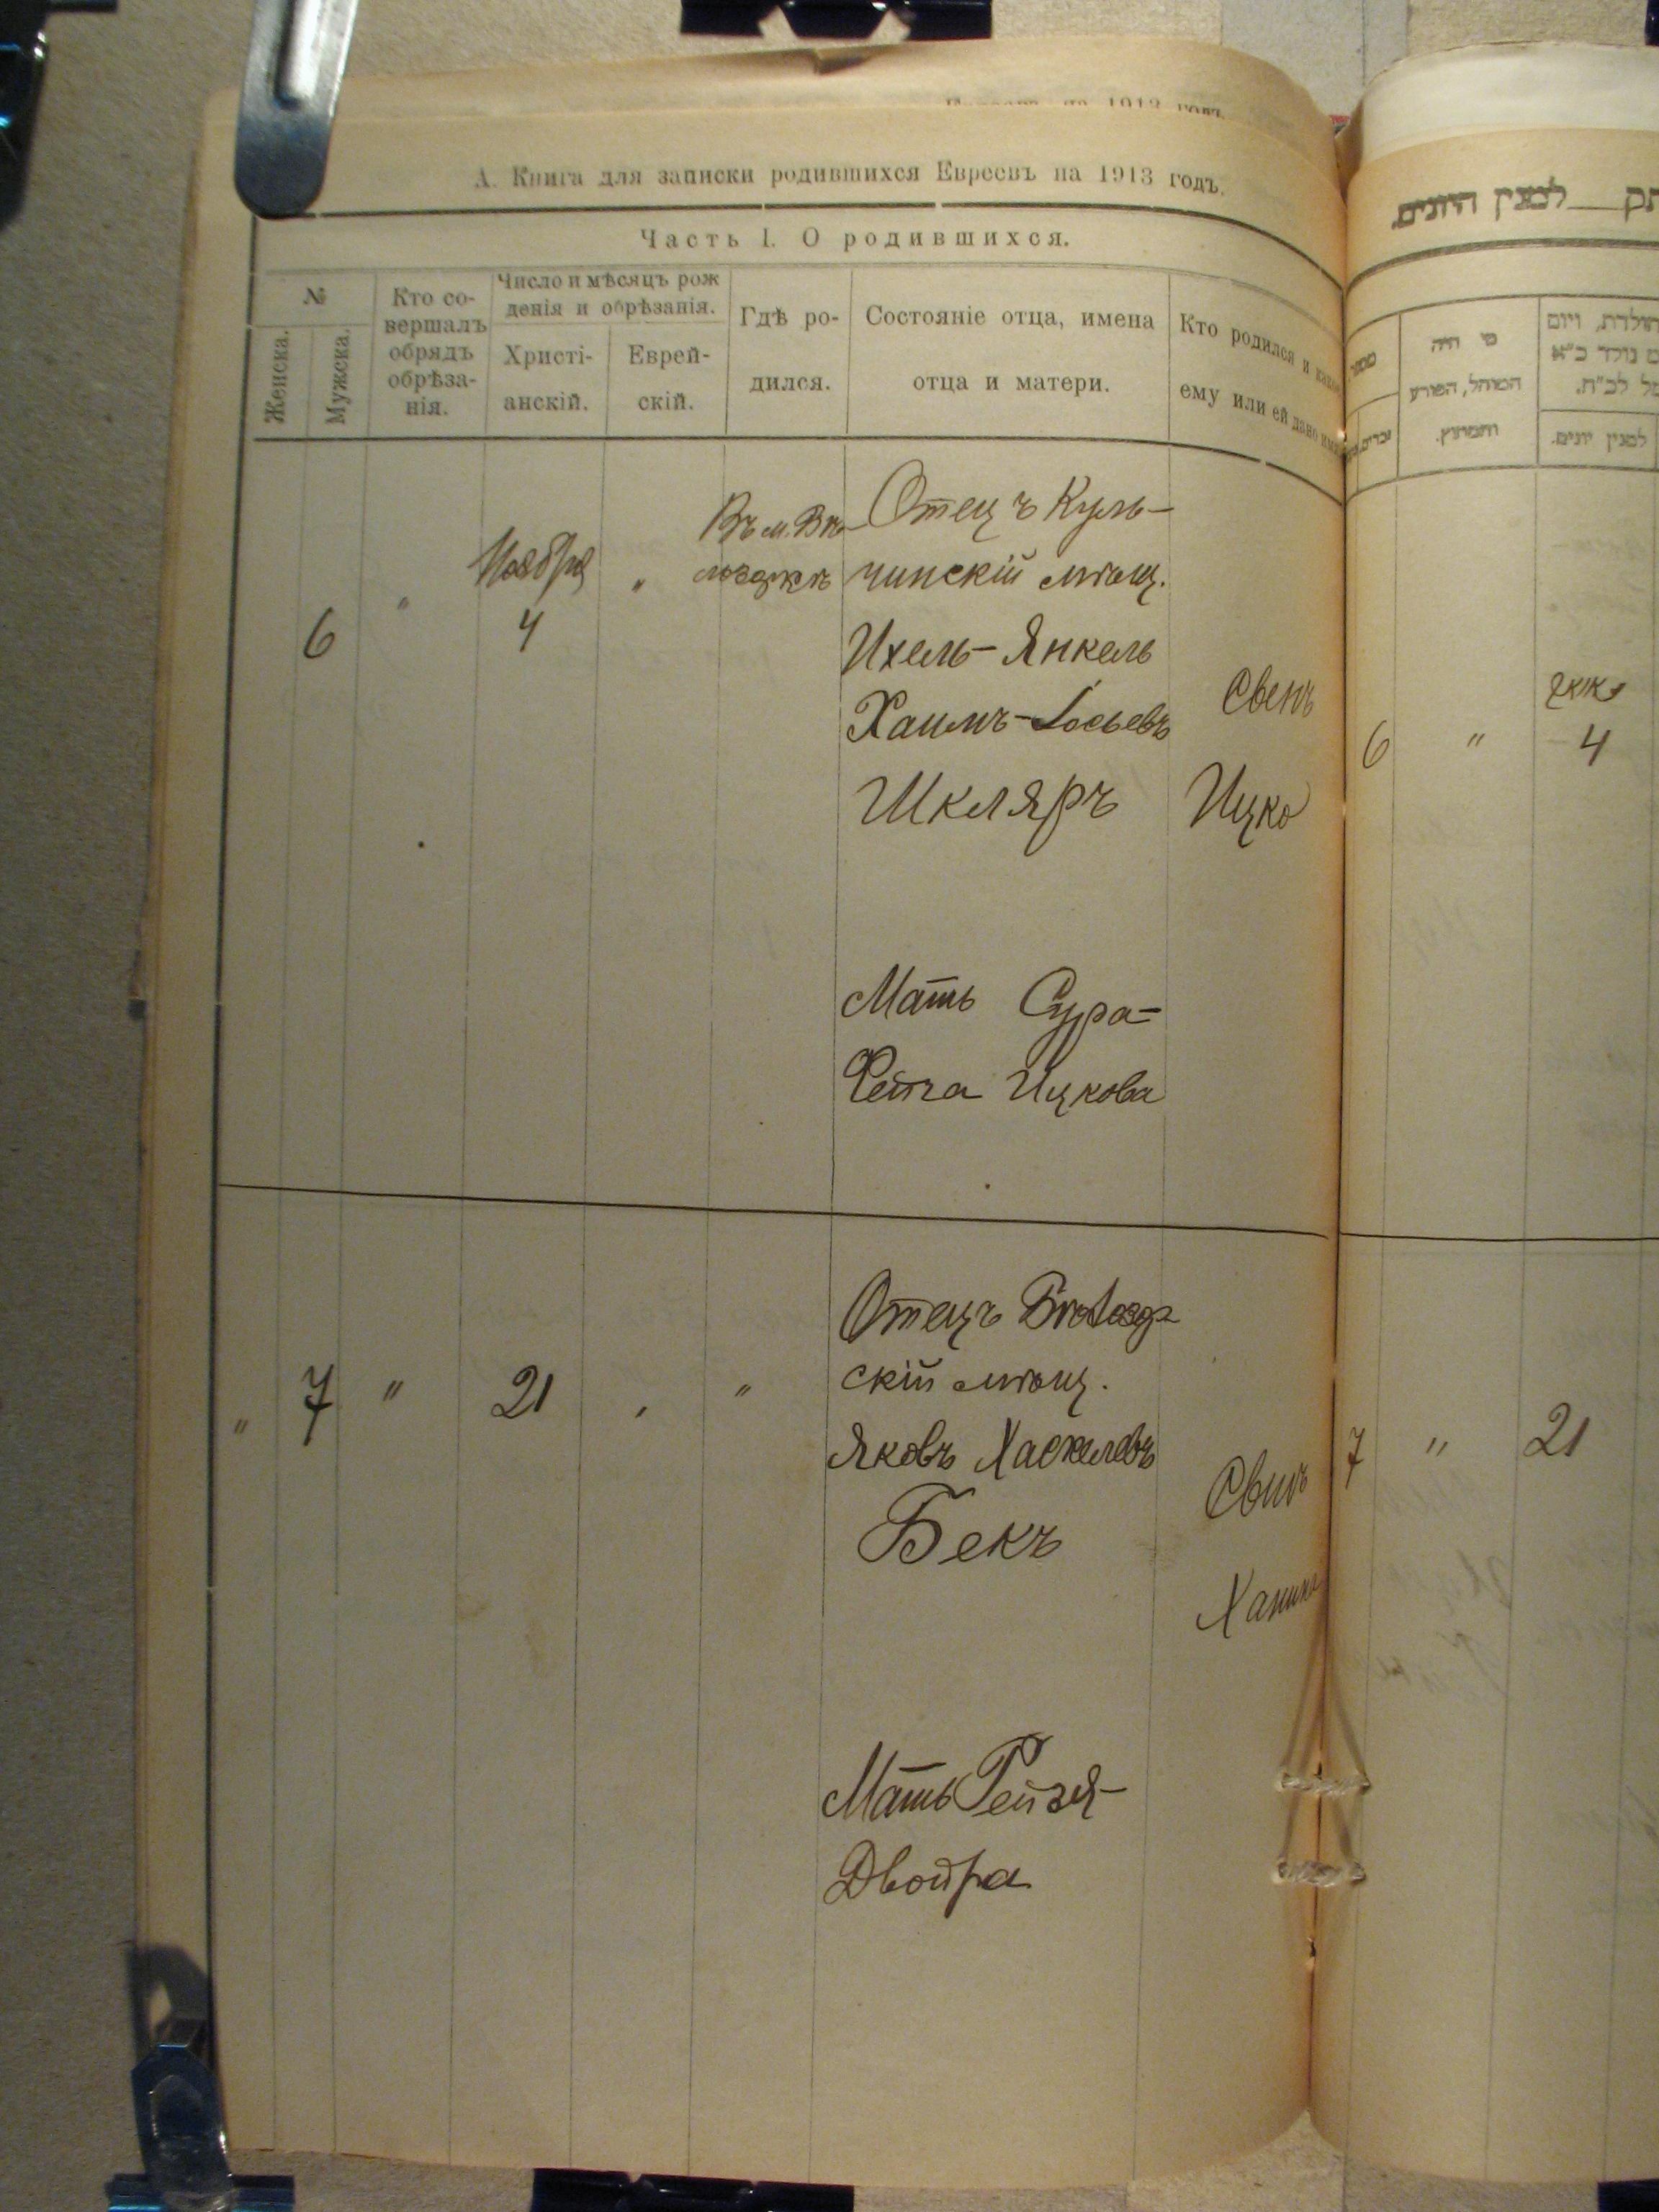 на 1913 годъ.
А. Книга для записки родившихся Евреевъ на 1913 годъ.
Часть 1. О родившихся.
№
Женска.
Мужска.
Кто со-
вершалъ
обрядъ
обрѣза-
нія.
Число и мѣсяцъ рож
денія и обрѣзанія.
Христі-
анскій.
Еврей-
скій.
Гдѣ ро-
дился.
Состояніе отца, имена
отца и матери.
Кто родился и какое
ему или ей дано имя
6
"
Ноября
4
"
Въ м.
Отецъ Куль-
чинскій мѣщ.
Ихель-Янкель
Хаимъ-Іосьевъ
Шкляръ
Мать Сура-
Фейга Ицкова
Свенъ
Ицко
"
7
"
21
"
"
Отецъ
скій мѣщ.
Яковъ Хаскелевъ
Бекъ
Мать Рейзя-
Двойра
Свинъ
למנין היונים.
מי היה
המוהל, הפורע
והמוצץ.
למנין יונים.
6
"
4
7
"
21